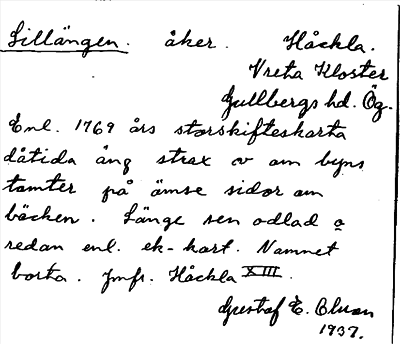 Lillängen. åker. Håckla.
Vreta Kloster
Gullbergs hd. Ög.
Enl. 1769 års storskifteskarta
dåtida äng strax v om byns
tomter på ömse sidor om
bäcken. Länge sen odlad o
redan enl. ek-kart. Namnet
borta. Jmfr. Håckla XIII.
Gustaf E.
1937.